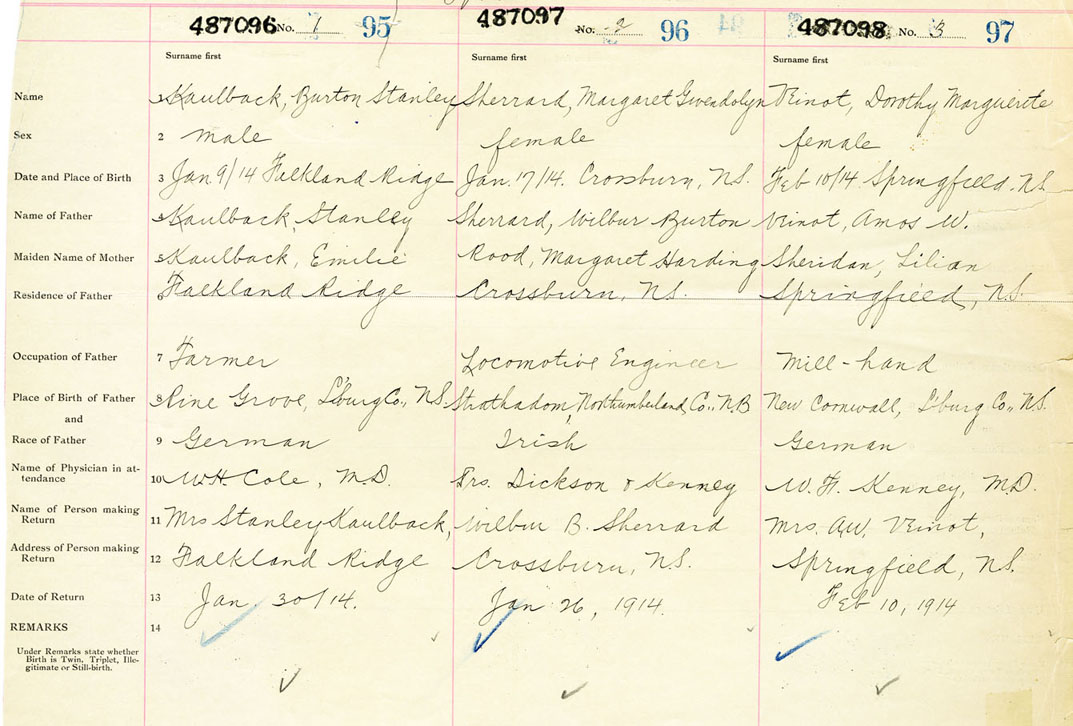 487096 No. 1 95 487097 No. 2 96 487098 No. 3 97
Surname first Surname first Surname first
Name 1 Kaulback, Burton Stanley Sherrard, Margaret Gwendolyn Veinot, Dorothy Marguerite
Sex 2 male female female
Date and Place of Birth 3 Jan. 9/14 Falkland Ridge Jan. 17/14. Crossburn, N.S. Feb 10/14 Springfield. N.S.
Name of Father 4 Kaulback, Stanley Sherrard, Wilbur Burton Veinot, Amos W.
Maiden Name of Mother 5 Kaulback, Emilie Rood, Margaret Harding Sheridan, Lilian
Residence of Father 6 Falkland Ridge Crossburn, N.S. Springfield, N.S.
Occupation of Father 7 Farmer Locomotive Engineer Mill-hand
Place of Birth of Father 8 Pine Grove, L'burg Co., N.S. Strathadom, Northumberland Co., N.B New Cornwall, L'burg Co., N.S.
and
Race of Father 9 German Irish German
Name of Physician in at-
tendance 10 W.H. Cole, M.D. Drs. Dickson & Kenney W. F. Kenney, M.D.
Name of Person making
Return 11 Mrs Stanley Kaulback, Wilbur B. Sherrard Mrs. A.W. Veinot,
Address of Person making
Return 12 Falkland Ridge Crossburn, N.S. Springfield, N.S.
Date of Return 13 Jan. 30/14. Jan 26, 1914. Feb 10, 1914
REMARKS 14
Under Remarks state whether
Birth is Twin, Triplet, Ille-
gitimate or Still-birth.